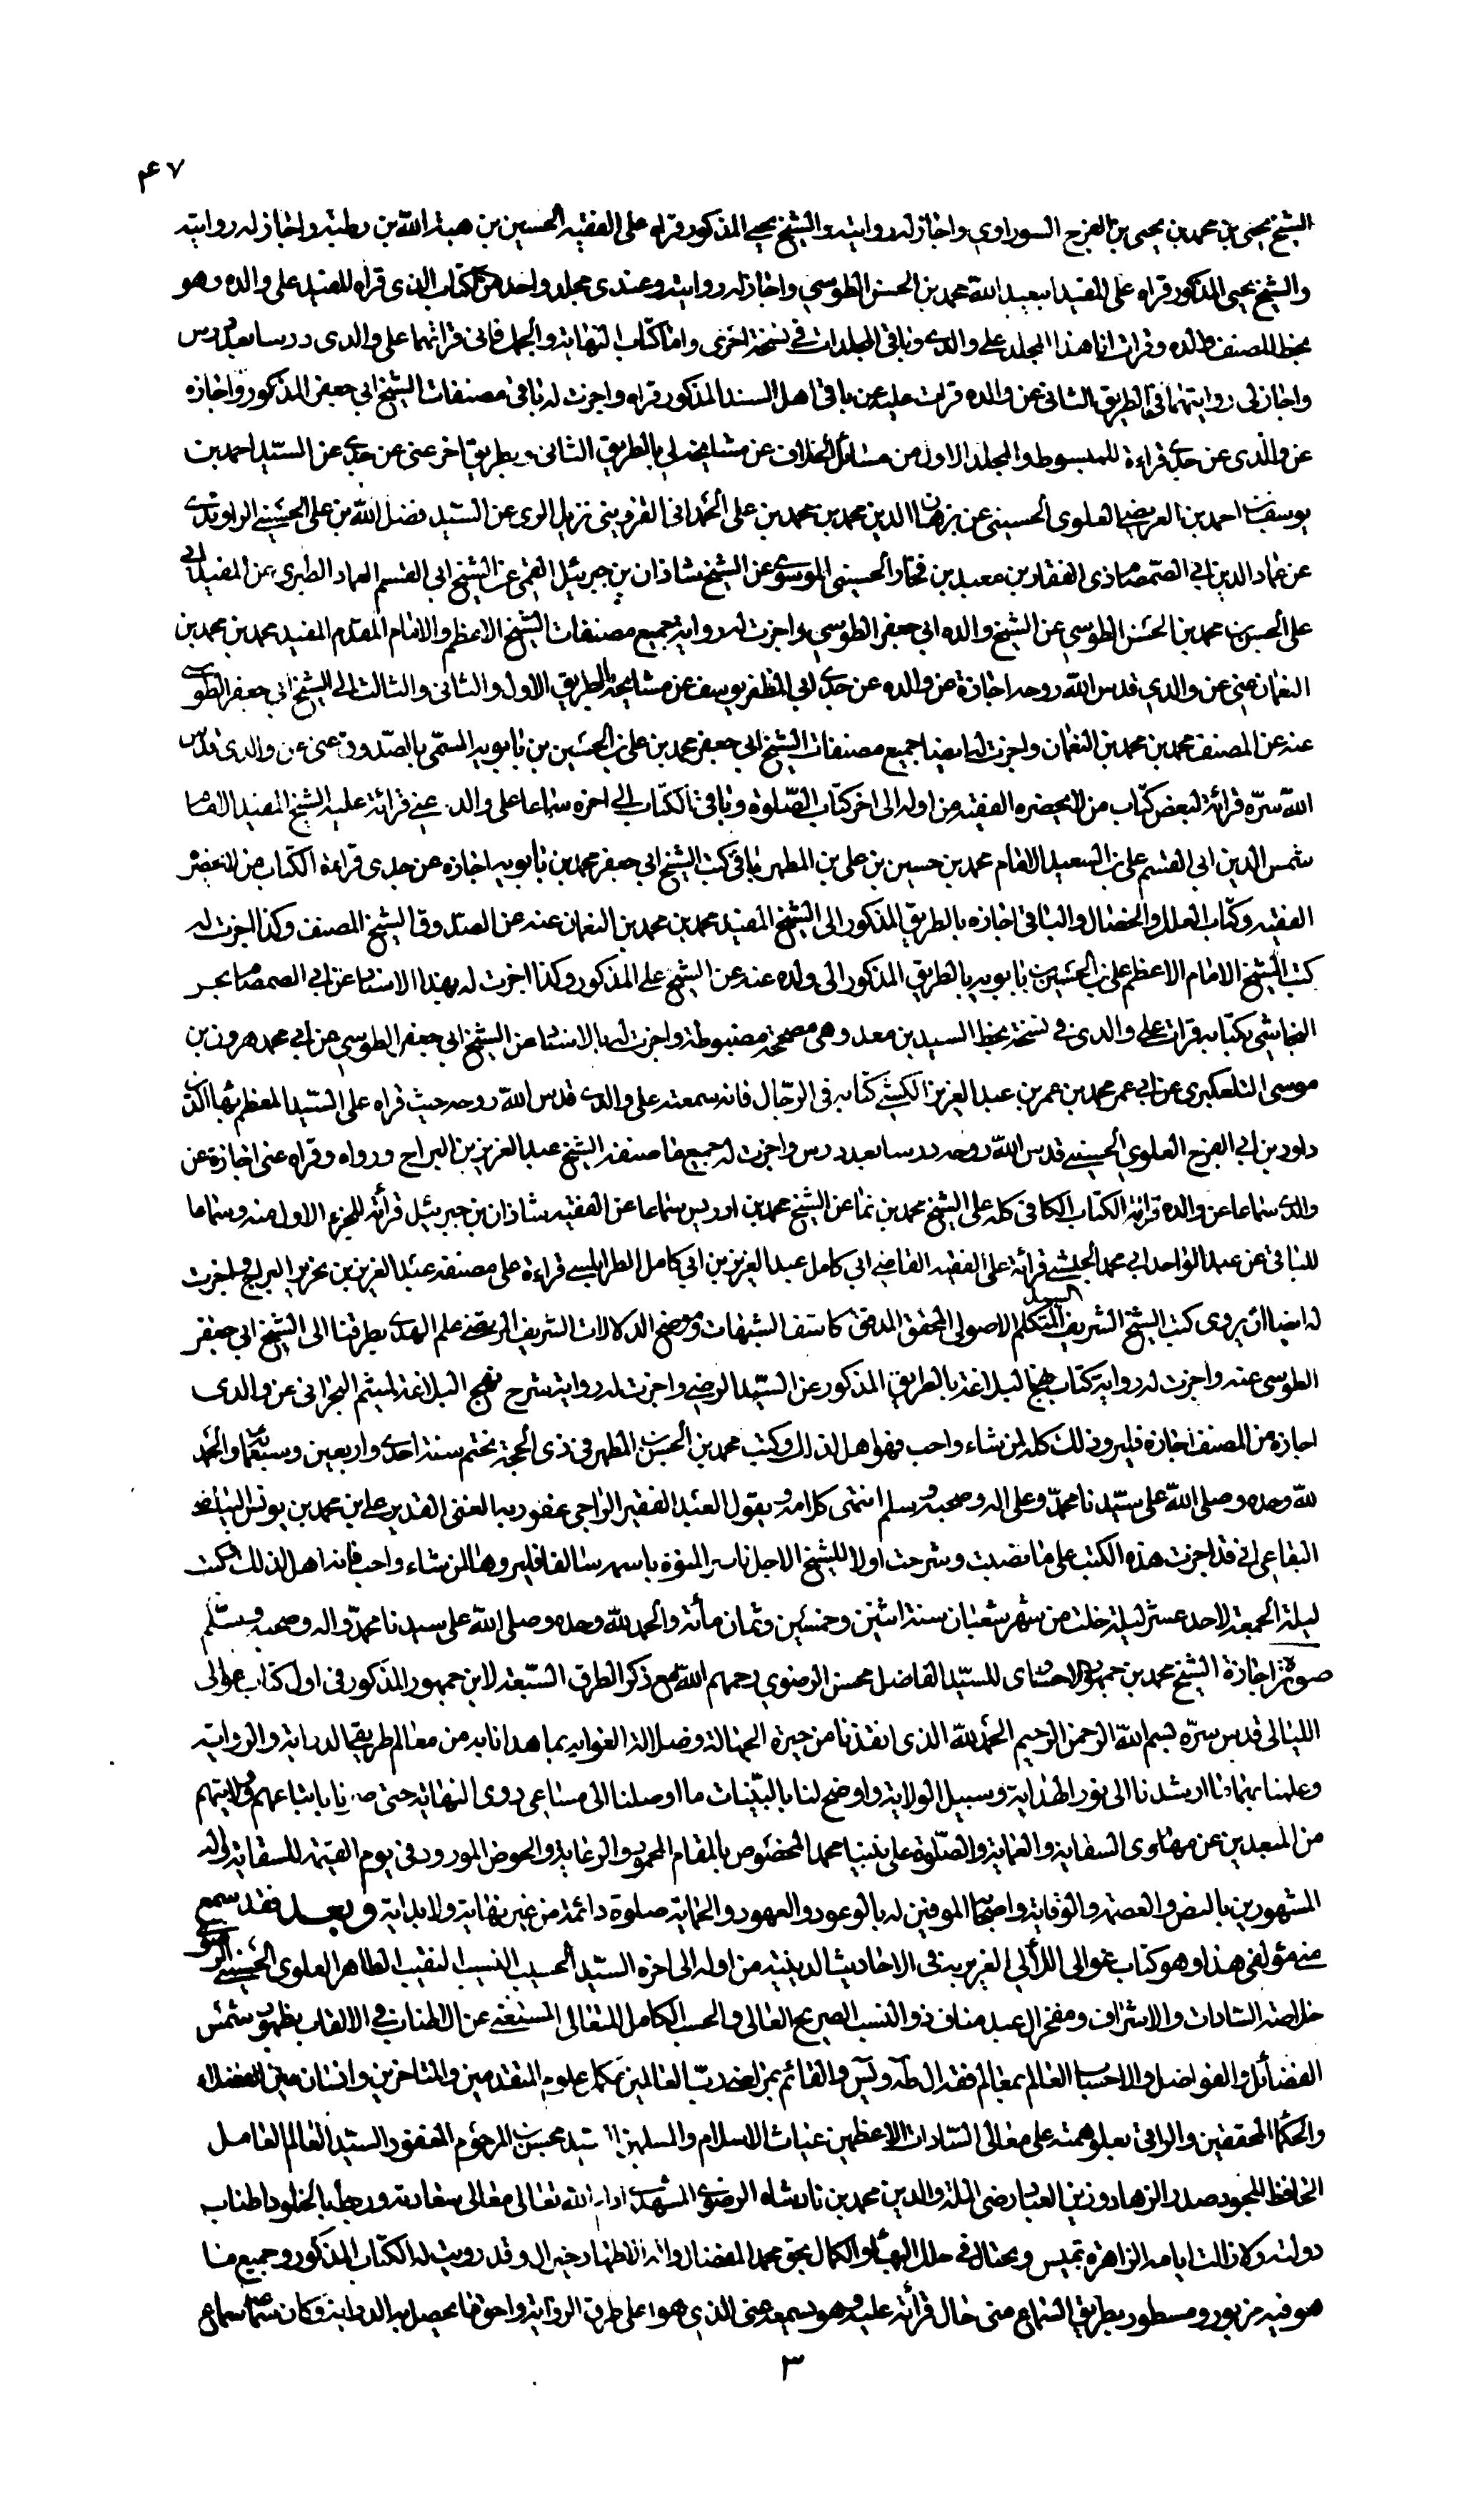 ۴۷
الشيخ يحيى بن محمد بن يحيى بن الفرج السوراوي واجاز له روايته والشيخ يحيى المذكور قراه على الفقيه الحسين بن هبة الله بن رطبة واجاز له روايته
والشيخ يحيى المذكور قراه على المفيد محمد بن الحسن الطوسي واجاز له روايته وعندى مجلد واحد من الكتاب الذى قراه المفيد على والده وهو
بخط المصنف والده وقرات انا هذا المجلد على والدى وباقى المجلدات فى نسخة اخرى واما كتاب النهاية والجمل فانى قراتهما على والدى درسا بعد درس
واجاز لى روايتهما بالطريق الثانى عن والده قرات عليه عن باقى اهل السند المذكور قراه واجزت له باقى مصنفات الشيخ ابى جعفر المذكور واجازه
عن والدى عن جدى قراءة للمبسوط والمجلد الاول من مسائل الخلاف عن مشايخه بالطريق الثانى وبطريق اخر عنى عن جدى عن السيد احمد بن
يوسف بن احمد بن العريضى العلوى الحسينى عن برهان الدين محمد بن محمد بن على الحمدانى القزوينى نزيل الرى عن السيد فضل الله بن على الحسينى الراوندى
عن عماد الدين ابى الصمصام ذى الفقار بن معبد بن فخار الحسينى الموسوى عن الشيخ شاذان بن جبرئيل القمى عن الشيخ ابى القسم العماد الطبرى عن المفيد ابى
على الحسن بن محمد بن الحسن الطوسى عن الشيخ والده ابى جعفر الطوسى واجزت له رواية جميع مصنفات الشيخ الاعظم والامام المقدم المفيد محمد بن محمد بن
النعمان عنى عن والدي قدس الله روحه اجازة عن والده عن جدى ابى المظفر يوسف عن مشايخه بالطريق الاول والثانى والثالث الى الشيخ ابى جعفر الطوسى
عنه عن المصنف محمد بن محمد بن النعمان واجزت له ايضا جميع مصنفات الشيخ ابى جعفر محمد بن على بن الحسين بن بابويه المسمى بالصدوق عنى عن والدى قدس
الله سره قرائة لبعض كتاب من لا يحضره الفقيه من اوله الى اخر كتاب الصلوة وباقى الكتاب الى اخره سماعا على والدى عنى قرائة عليه الشيخ المفيد
شمس الدين ابى القسم على بن السعيد الامام محمد بن حسين بن على بن المطهر باقى كتب الشيخ ابى جعفر محمد بن بابويه اجازه عن جدى قراءة الكتاب من لا يحضره
الفقيه وكتاب العلل والخصال والباقى اجازه بالطريق المذكور الى الشيخ المفيد محمد بن محمد بن النعمان عنه عن الصدوق الشيخ المصنف وكذا اجزت له
كتب الشيخ الامام الاعظم على بن الحسين بن بابويه بالطريق المذكور الى ولده عنه عن الشيخ على المذكور وكذا اجزت له بهذا الاسناد عن ابى الصمصام عن
النجاشى بكتابه قرات على والدى فى نسخة بخط السيد بن معد وهى مصححة مضبوطة واجزت له بالاسناد عن الشيخ ابى جعفر الطوسى عن ابى محمد هرون بن
موسى التلعكبرى عن ابى عمر محمد بن عمر بن عبد العزيز الكشى كتابه فى الرجال فانه سمعته على والدى قدس الله روحه حيث قراه على السيد المعظم بهاء الدين
داود بن ابى الفرج العلوى الحسينى قدس الله روحه درسا بعد درس واجزت له جميع ما صنفه الشيخ عبد العزيز بن البراج ورواه وقراه عنى اجازة عن
والدى سماعا عن والده قرائة الكتاب الكافى كله على الشيخ محمد بن نما عن الشيخ محمد بن ادريس سماعا عن الفقيه شاذان بن جبرئيل قرائة للجزء الاول منه وسماعا
للباقى عن عبد الواحد ابى محمد الحبشى قرائة على الفقيه القاضى ابى كامل عبد العزيز بن ابى كامل الطرابلسى قراءة على مصنفه عبد العزيز بن نحرير البراج واجزت
له ايضا ان يروى كتب الشيخ الشريف السيد المتكلم الاصولى المحقق المدقق كاشف الشبهات وموضح الدلالات الشريف المرتضى علم الهدى بطرقنا الى الشيخ ابى جعفر
الطوسى عنه واجزت له رواية كتاب نهج البلاغة بالطريق المذكور عن السيد الرضى واجزت له رواية شرح نهج البلاغة لميثم البحرانى عن والدى
اجازه من المصنف اجازة فليرو ذلك كله لمن شاء واحب فهو اهل لذلك وكتب محمد بن الحسن بن المطهر فى ذى الحجة بختم سنة احدى واربعين وسبعمائة والحمد
لله وحده وصلى الله على سيدنا محمد وعلى اله وصحبه وسلم انتهى كلامه ويقول العبد الفقير الراجى عفو ربه الغنى القدير على بن محمد بن يونس البياضى
البقاعى انى قد اجزت هذه الكتب على ما نصبت وشرحت اولا للشيخ الاجل ناصر المنوه باسمه سالفا فليروها لمن شاء واحب فانه اهل لذلك وكتب
ليلة الجمعة لاحد عشر ليلة خلت من شهر شعبان سنة اثنتين وخمسين وثمان مأة والحمد لله وحده وصلى الله على سيدنا محمد واله وصحبه وسلم
صورة اجازة الشيخ محمد بن جمهور الاحسائى للسيد الفاضل محسن الرضوى رحمهم الله مع ذكر الطرق السبعة لابن جمهور المذكور فى اول كتاب عوالى
اللئالى قدس سره بسم الله الرحمن الرحيم الحمد لله الذى انقذنا من حيرة الجهالة وضلالة الغواية بما هدانا به من معالم طريقى الدراية والرواية
وعلمنا بما ارشدنا الى نور الهداية وسبيل الولاية واوضح لنا بالبينات ما اوصلنا الى مساعى ذوى النهاية حتى صرنا باتباعهم وولايتهم
من المبعدين عن مهاوى السفاية والعماية والصلوة على نبينا محمد المخصوص بالمقام المحمود والرعاية والحوض المورود فى يوم القيمة للسقاية واله
المشهورين بالنص والعصمة والوقاية واصحابه الموفين له بالوعود والعهود والحماية صلوة دائمة من غير نهاية ولا بداية وبعد فقد سمع
منى مؤلفى هذا وهو كتاب عوالى اللألى العزيزية فى الاحاديث الدينية من اوله الى اخره السيد الحسيب النسيب النقيب الطاهر العلوى الحسينى الرضوى
خلاصة السادات والاشراف ومفخر ال عبد مناف ذو النسب الصريح العالى والحسب الكامل المتعالى المستغنى عن الاطناب فى الالقاب بظهور شمس
الفضائل والفواضل والاحساب العالم بمعالم فقه ال طه ويس والقائم بمراضى رب العالمين مكمل علوم المتقدمين والمتاخرين وانسان عين الفضلاء
والحكماء المحققين والراقى بعلو همته على معالى السادات الاعظمين غياث الاسلام والمسلمين السيد محسن بن المرحوم المغفور السيد العالم العامل
الحافظ المجود صدر الزهاد وزين العباد رضى الملة والدين محمد بن نادشاه الرضوى المشهدى ادام الله تعالى معالى سعادته وربط بالخلود اطناب
دولته ولا زالت ايامه الزاهرة تميس وتختال فى حلل البهاء والكمال بحق محمد المفضال واله الاطهار خير ال وقد رويت له الكتاب المذكور وجميع ما
هو فيه مزبور ومسطور بطريق السماع منى حال قرائته عليه وهو يسمعه عنى الذى هو اعلى طرق الرواية واحق ما يحصل به الدراية وكان سماعه سماع
۳